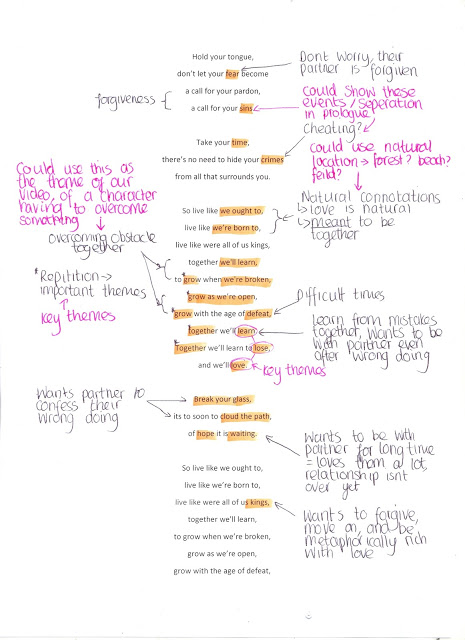 Hold your tongue,
don't let your fear become
a call for your pardon,
a call for your sins
Dont worry, their
partner is forgiven
forgiveness
could show these
events/seperation
in prologue?
Cheating?
Take your time,
there's no need to hide your crimes
from all that surrounds you.
could use natural
location → forest? beach?
feild?
Could use this as
the theme of our
video, of a character
having to overcome
something
overcoming obstacle
together
So live like we ought to,
live like we're born to,
live like were all of us kings,
together we'll learn,
to grow when we're broken,
grow as we're open,
grow with the age of defeat,
Together we'll learn
Together we'll learn to lose,
and we'll love.
Natural connotations
↳ love is natural
↳ meant to be
together
*Repitition →
important themes
key themes
Difficult times
learn from mistakes
together, wants to be
with partner even
after wrong doing
key themes
Wants partner to
confess their
wrong doing
Break your glass,
its to soon to cloud the path,
of hope it is waiting.
wants to be with
partner for long time
= loves them a lot,
relationship isnt
over yet
So live like we ought to,
live like we're born to,
live like were all of us kings,
together we'll learn,
to grow when we're broken,
grow as we're open,
grow with the age of defeat,
wants to forgive,
move on, and be
metaphorically rich
with love